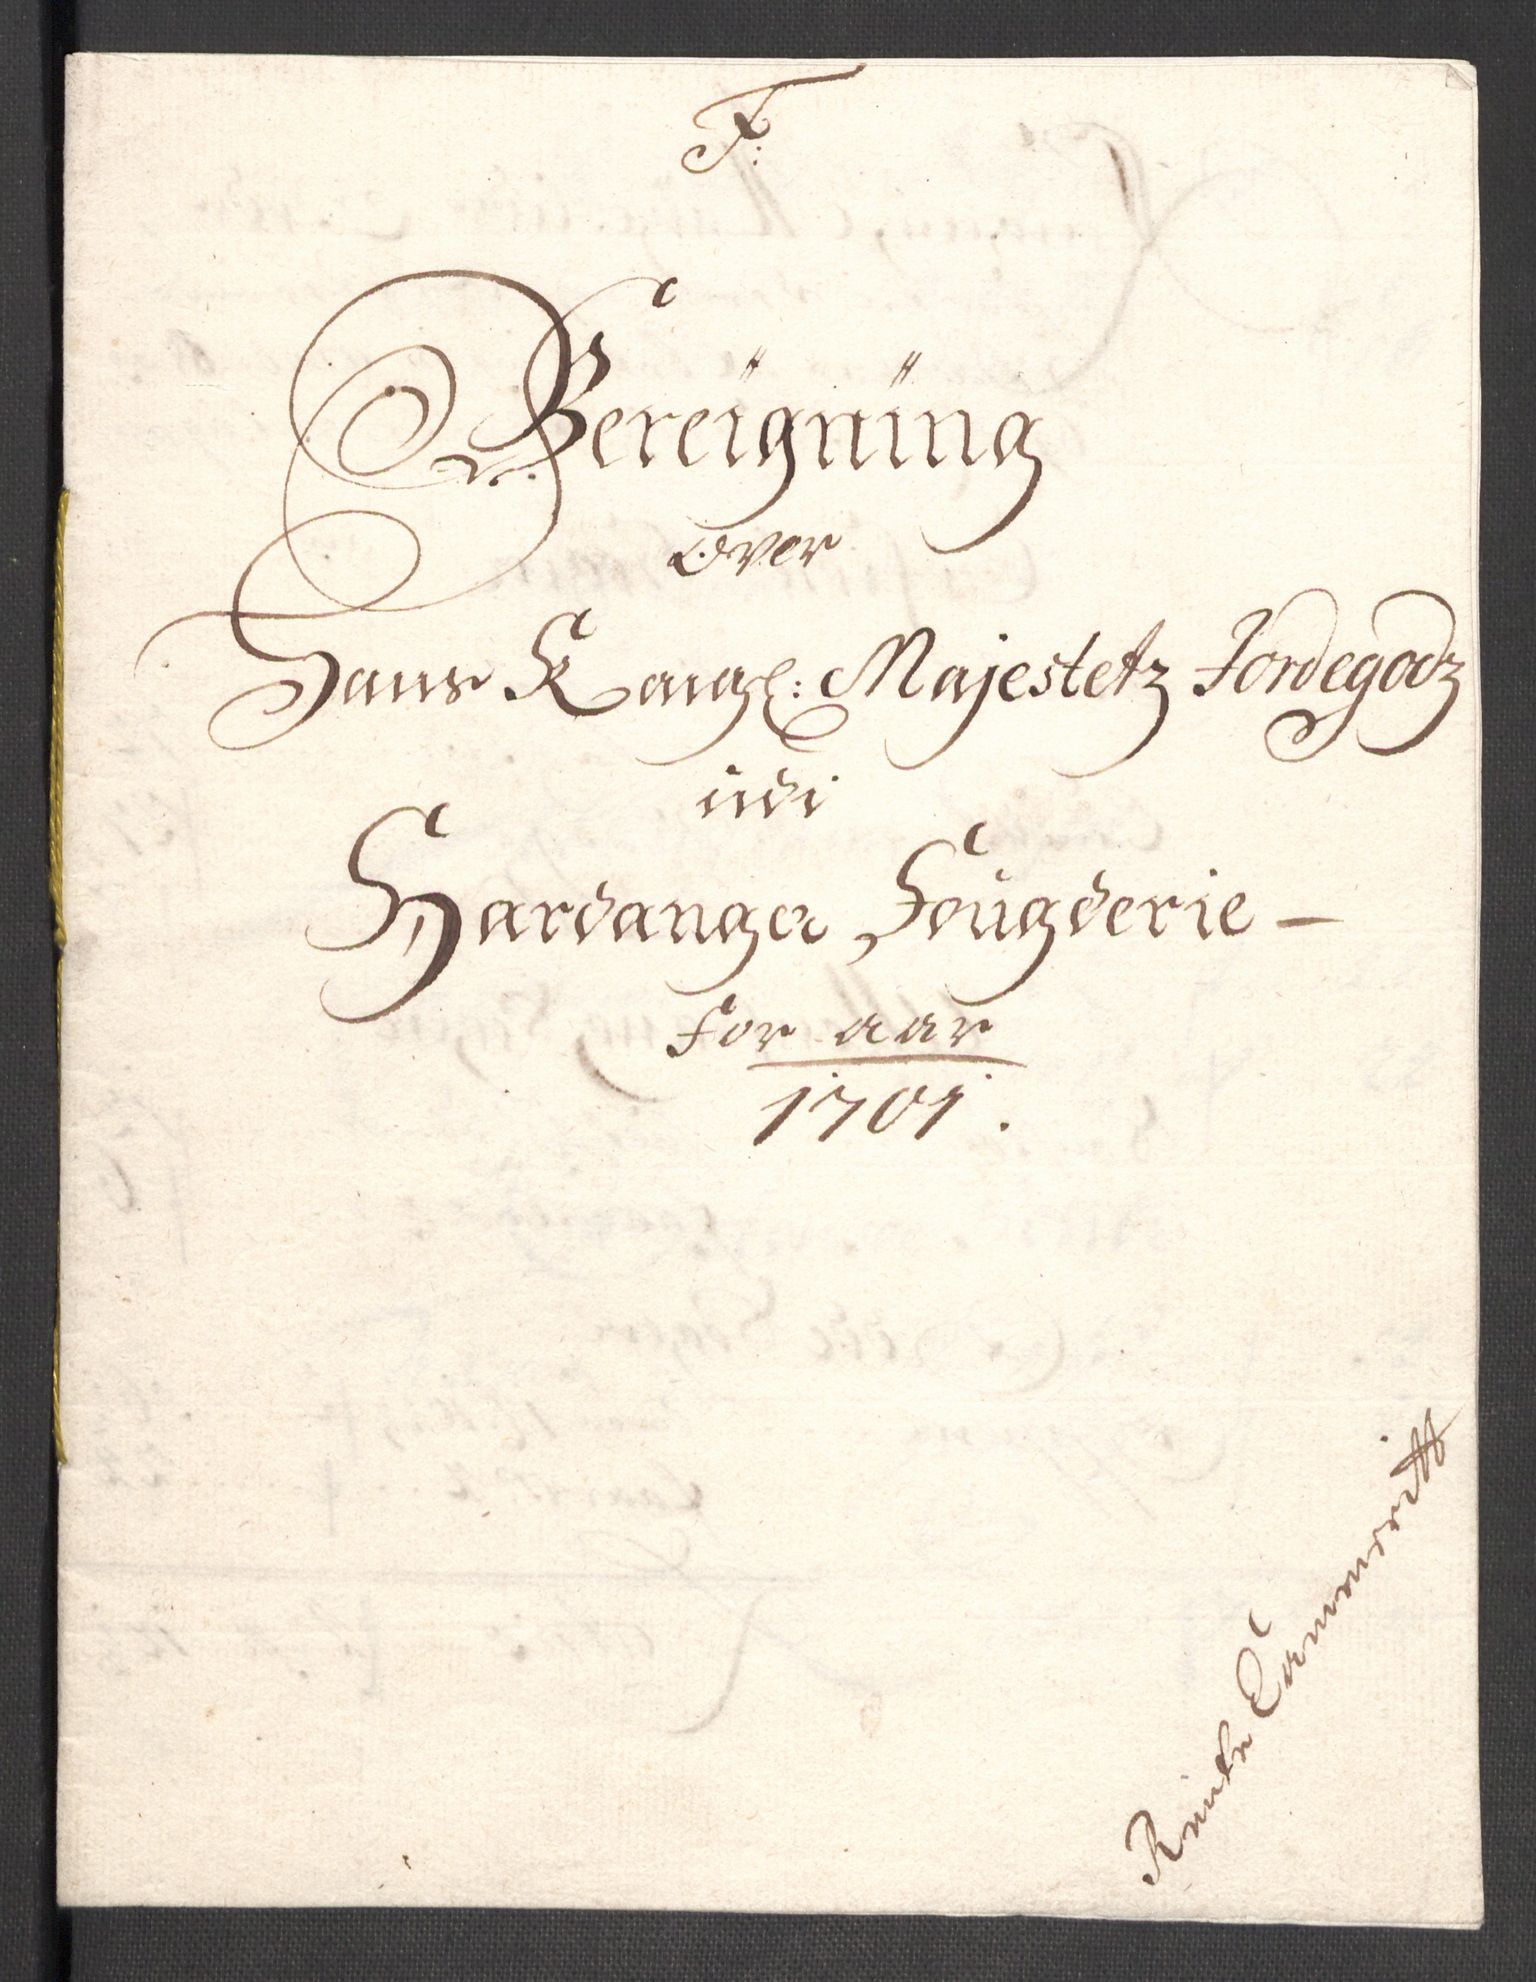 F:
Bereigning
over
Hans Kongl: Majestetz Jordegodz
udi
Hardanger Fougderie –
for aar
1701.
Rente Cammerit